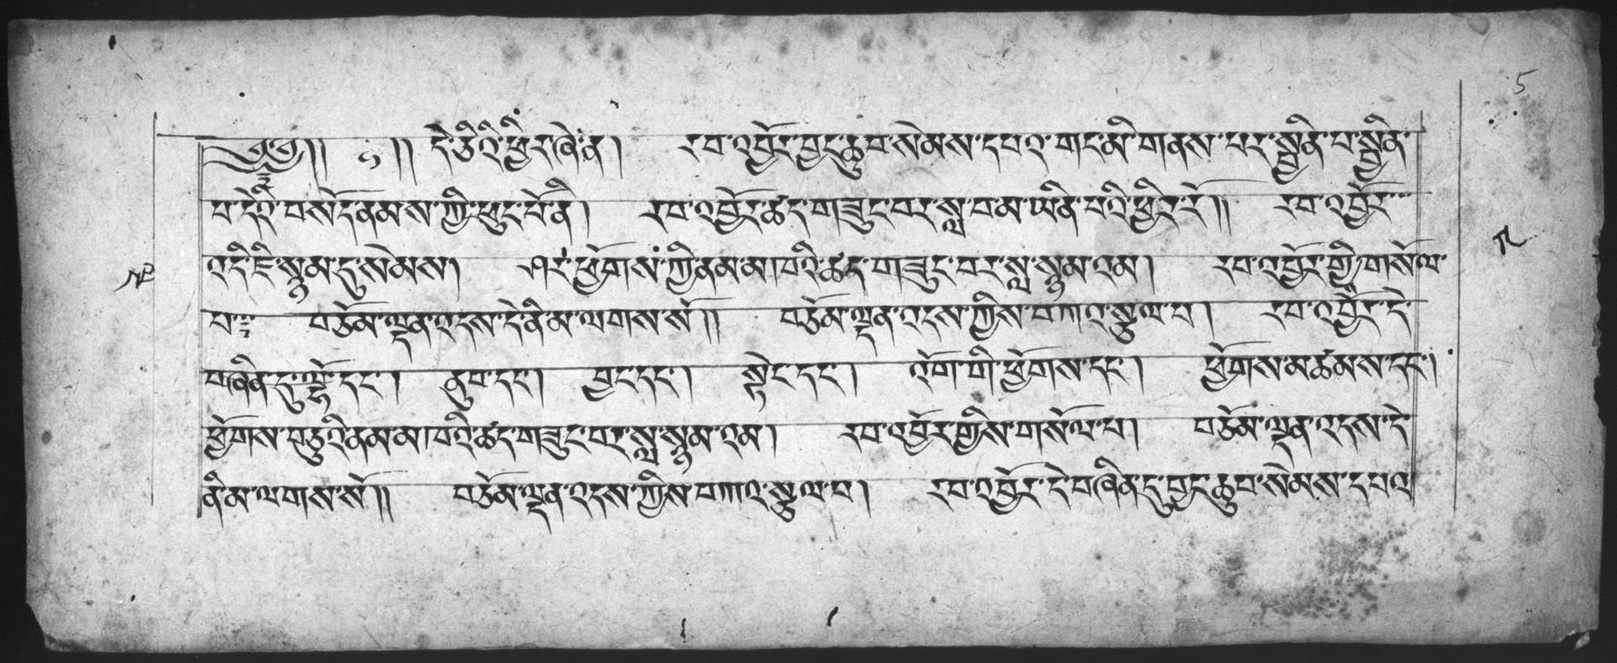 ༄༅།། ༡ །། དེ་ཅིའི་ཕྱིར་ཞེ་ན། རབ་འབྱོར་བྱང་ཆུབ་སེམས་དཔའ་གང་མི་གནས་པར་སྦྱིན་པ་སྦྱིན་
པ་དེའི་བསོདནམས་ཀྱི་ཕུང་པོ་ནི། རབ་འབྱོར་ཚད་གཟུང་བར་སླ་བམ་ཡིན་པའི་ཕྱིར་རོ།། རབ་འབྱོར་
འདི་ཇི་སྙམ་དུ་སེམས། ཤར་ཕྱོགས་ཀྱི་ནམ་མ།བའི་ཚད་གཟུང་བར་སླ་སྙམ་འམ། རབ་འབྱོར་གྱི་གསོལ་
པ་ བཅོམ་ལྡན་འདས་དེ་ནི་མ་ལགས་སོ།། བཅོམ་ལྡན་འདས་ཀྱིས་བཀའ་སྩལ་པ། རབ་འབྱོར་དེ་
བཞིན་དུ་ལྷོ་དང་། ནུབ་དང་། བྱང་དང་། སྟེང་དང་། འོག་གི་ཕྱོགས་དང་། ཕྱོགས་མཚམས་དང་།
ཕྱོགས་བཅུའི་ནམ་མ།བའི་ཚད་གཟུང་བར་སླ་སྙམ་འམ། རབ་འབྱོར་གྱིས་གསོལ་པ། བཅོམ་ལྡན་འདས་དེ་
ནི་མ་ལགས་སོ།། བཅོམ་ལྡན་འདས་ཀྱིས་བཀའ་སྩལ་པ། རབ་འབྱོར་དེ་བཞིན་དུ་བྱང་ཆུབ་སེམས་དཔའ
5